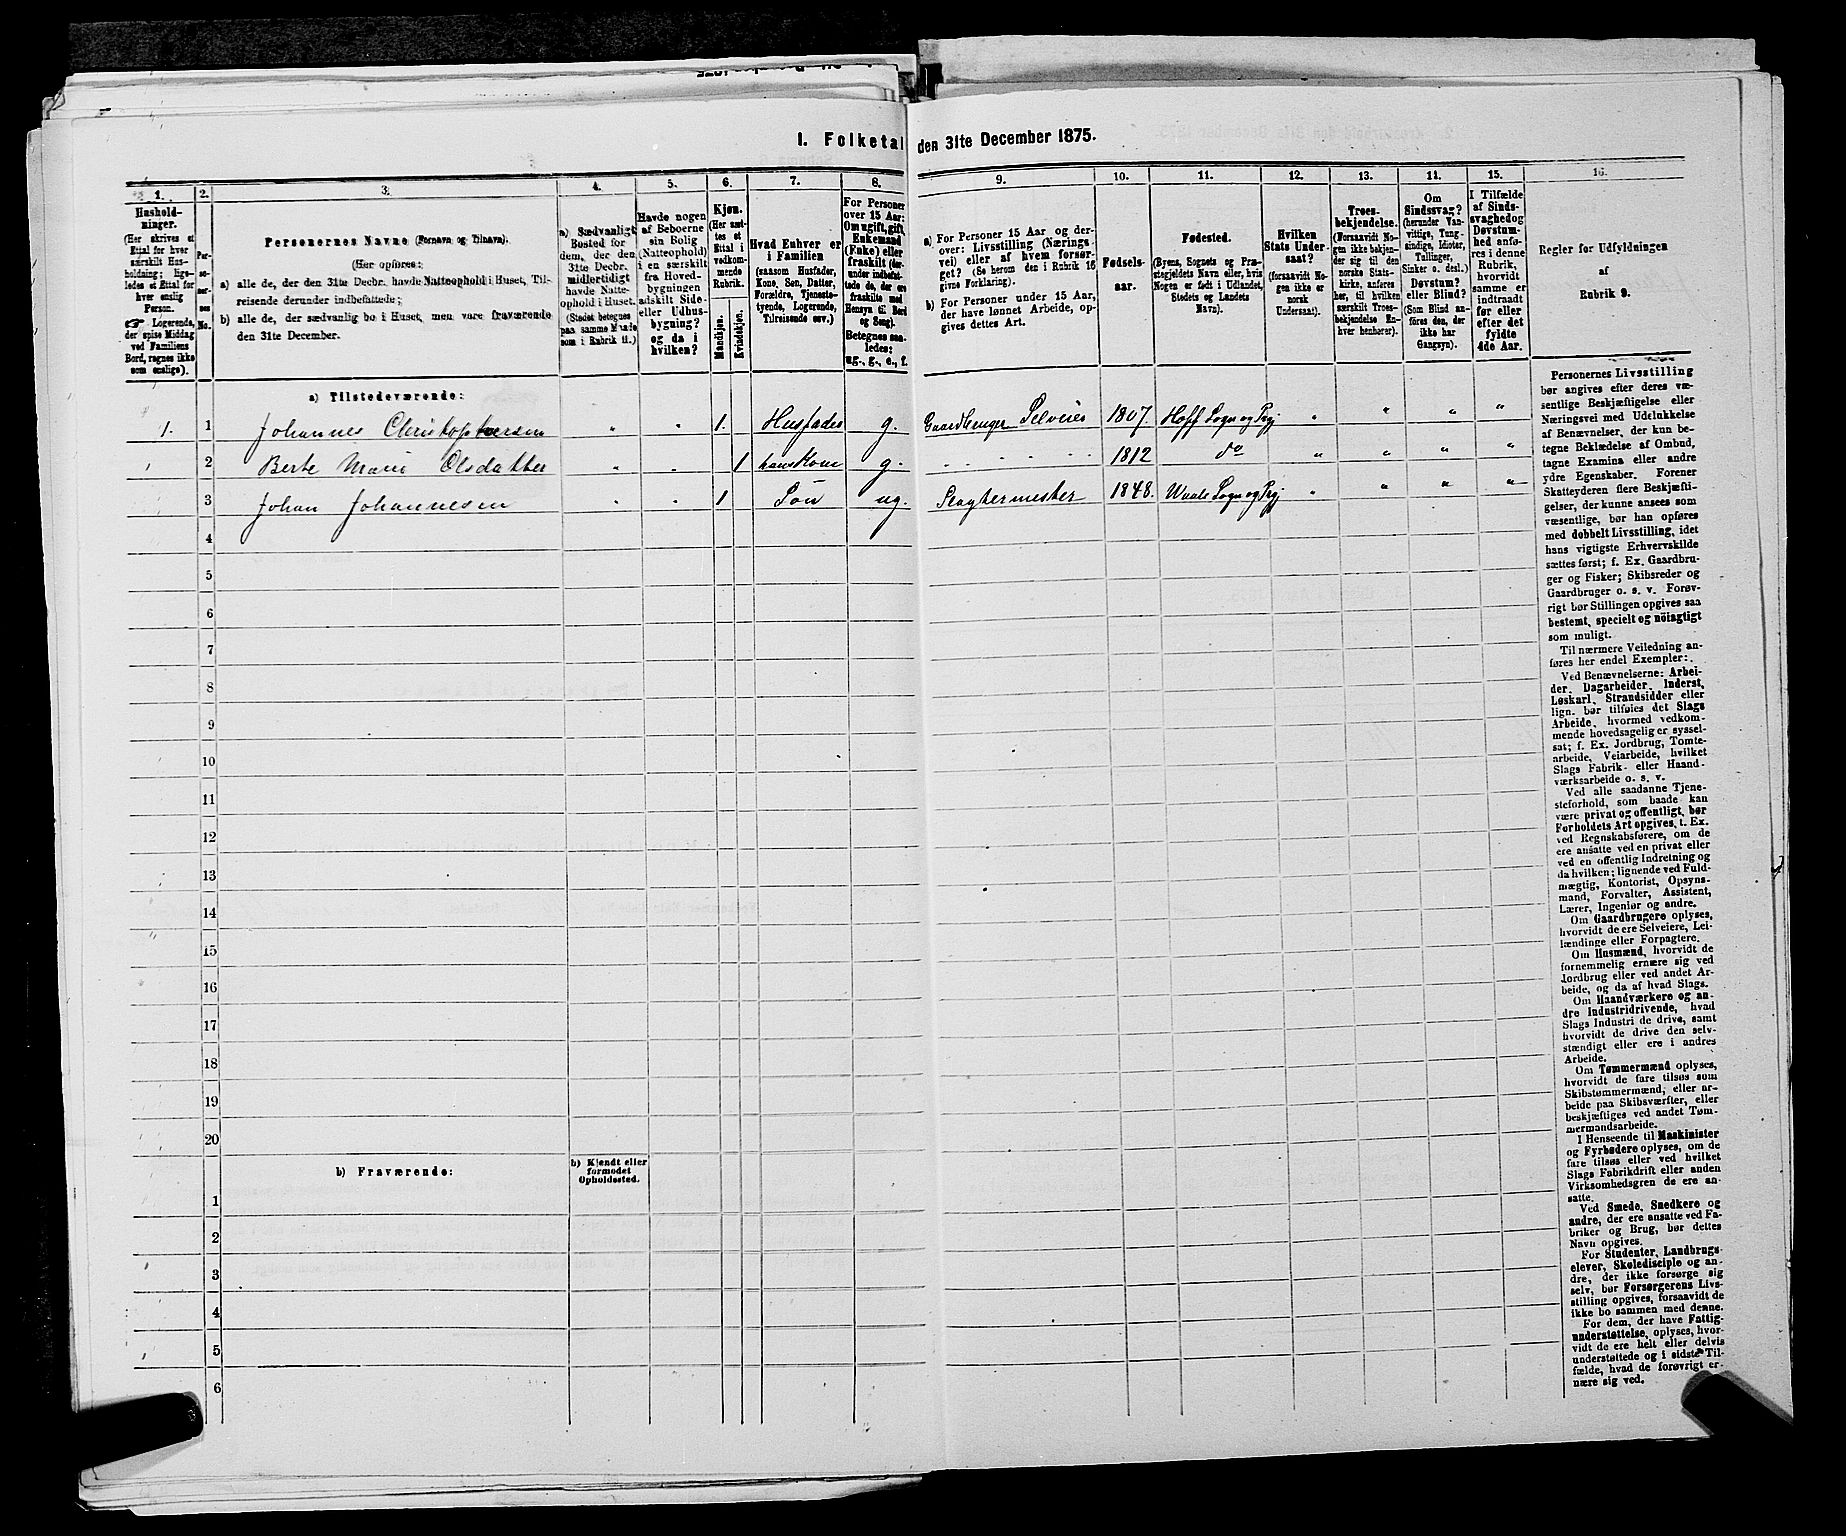 I. Folketal den 31te December 1875.
1. 2. 3. 4. 5. 6. 7. 8. 9. 10. 11. 12. 13. 11. 15. 16.
Hushold-
ninger.
(Her skrives et
Ettal for hver
særskilt Hus-
holdning; lige-
ledes et Ettal for
hver enslig
Person.
☞ Logerende,
der spise Middag
ved Familiens
Bord, regnes ikke
som enslige).
Per-
so-
ner-
nes
No.
Personernes Navne (Fornavn og Tilnavn).
(Her opføres:
a) alle de, der den 31te Decbr. havde Natteophold i Huset, Til-
reisende derunder indbefattede;
b) alle de, der sædvanlig bo i Huset, men vare fraværende
den 31te December.
a) Sædvanligt
Bosted for
dem, der den
31te Decbr.
midlertidigt
havde Natte-
ophold i Huset.
(Stedet betegnes
paa samme Maade
som i Rubrik 11.)
Havde nogen
af Beboerne
sin Bolig
(Natteophold)
i en særskilt
fra Hoved-
bygningen
adskilt Side-
eller Udhus-
bygning?
og da i
hvilken?
Kjøn.
(Her sæt-
tes et
Ettal i
vedkom-
mende
Rubrik.
Mandkjøn.
Kvindekjøn.
Hvad Enhver er
i Familien
(saasom Husfader,
Kone, Søn, Datter,
Forældre, Tjeneste-
tyende, Logerende,
Tilreisende osv.)
For Personer
over 15 Aar:
Om ugift, gift,
Enkemand
(Enke) eller
fraskilt (der-
under indbefat-
tede de, der ere
fraskilte med
Hensyn til Bord
og Seng).
Betegnes saa-
ledes:
ug., g., e., f.
a) For Personer 15 Aar og der-
over: Livsstilling (Nærings-
vei) eller af hvem forsør-
get? (Se herom den i Rubrik 16
givne Forklaring).
b) For Personer under 15 Aar,
der have lønnet Arbeide, op-
gives dettes Art.
Fødsels-
aar.
Fødested.
(Byens, Sognets og Præ-
stegjeldets Navn eller, hvis
Nogen er født i Udlandet,
Stedets og Landets
Navn).
Hvilken
Stats Under-
saat?
(forsaavidt No-
gen ikke er
norsk
Undersaat).
Troes-
bekjendelse.
(Forsaavidt No-
gen ikke bekjen-
der sig til den
norske Stats-
kirke, anføres
her, til hvilken
særskilt Troes-
bekjendelse En-
hver henhører).
Om
Sindssvag?
(herunder Van-
vittige, Tung-
sindige, Idioter,
Tullinger,
Sinker o. desl.)
Døvstum?
eller Blind?
(Som Blind an-
føres den, der
ikke har
Gangsyn).
I Tilfælde
af Sinds-
svaghed og
Døvstum-
hed anfø-
res i denne
Rubrik,
hvorvidt
samme er
indtraadt
før eller
efter det
fyldte
4de Aar.
Regler for Udfyldningen
af
Rubrik 9.
a) Tilstedeværende:
1. 1 Johannes Christophersen " " 1. Husfader g. Gaardbruger Selveier 1807. Hoff Sogn og Prgj " " " "
2 Berte Marie Olsdatter " " 1 hans Kone g. 1812 do " " " "
3 Johan Johannesen " " 1 Søn ug. Slagtermester 1848. Waale Sogn og Prgj " " " "
4
5
6
7
8
9
10
11
12
13
14
15
16
17
18
19
20
b) Fraværende:
b) Kjendt eller
formodet
Opholdssted.
1
2
3
4
5
6
Personernes Livsstilling
bør angives efter deres væ-
sentlige Beskjæftigelse eller
Næringsvei med Udelukkelse
af Benævnelser, der kun be-
tegne Beklædelse af Ombud,
tagne Examina eller andre
ydre Egenskaber. Forener
Skatteyderen flere Beskjæfti-
gelser, der kunne ansees som
væsentlige, bør han opføres
med dobbelt Livsstilling, idet
hans vigtigste Erhvervskilde
sættes først; f. Ex. Gaardbru-
ger og Fisker; Skibsreder og
Gaardbruger o. s. v. Forøv-
rigt bør Stillingen opgives saa
bestemt, specielt og nöiagtigt
som muligt.
Til nærmere Veiledning an-
føres her endel Exempler:
Ved Benævnelserne: Arbei-
der, Dagarbeider, Inderst,
Løskarl, Strandsidder eller
lign. bør tilføies det Slags
Arbeide, hvormed vedkom-
mende hovedsagelig er syssel-
sat; f. Ex. Jordbrug, Tomte-
arbeide, Veiarbeide, hvilket
Slags Fabrik- eller Haand-
værksarbeide o. s. v.
Ved alle saadanne Tjene-
steforhold, som baade kan
være privat og offentligt, bør
Forholdets Art opgives, t. Ex.
ved Regnskabsførere, om de
ere ansatte ved en privat eller
ved en offentlig Indretning og
da hvilken; lignende ved Fuld-
mægtig, Kontorist, Opsyns-
mand, Forvalter, Assistent,
Lærer, Ingeniør og andre.
Om Gaardbrugere oplyses,
hvorvidt de ere Selveiere, Lei-
lændinge eller Forpagtere.
Om Husmænd, hvorvidt de
fornemmelig ernære sig ved
Jordbrug eller ved andet Ar-
beide, og da af hvad Slags.
Om Haandværkere og an-
dre Industridrivende, hvad
Slags Industri de drive, samt
hvorvidt de drive den selv-
stændigt eller ere i andres
Arbeide.
Om Tømmermænd oplyses,
hvorvidt de fare tilsøs som
Skibstømmermænd, eller ar-
beide paa Skibsværfter, eller
beskjæftiges ved andet Tøm-
mermandsarbeide.
I Henseende til Maskinister
og Fyrbødere oplyses, om de
fare tilsøs eller ved hvilket
Slags Fabrikdrift eller anden
Virksomhedsgren de ere an-
satte.
Ved Smede, Snedkere og
andre, der ere ansatte ved Fa-
briker og Brug, bør dettes
Navn opgives.
For Studenter, Landbrugs-
elever, Skoledisciple og an-
dre, der ikke forsørge sig
selv, bør Forsørgerens Livs-
stilling opgives, forsaavidt de
ikke bo sammen med denne.
For dem, der have Fattig-
understøttelse, oplyses, hvor-
vidt de ere helt eller delvis
understøttede og i sidste Til-
fælde, hvad de forøvrigt er-
nære sig ved.